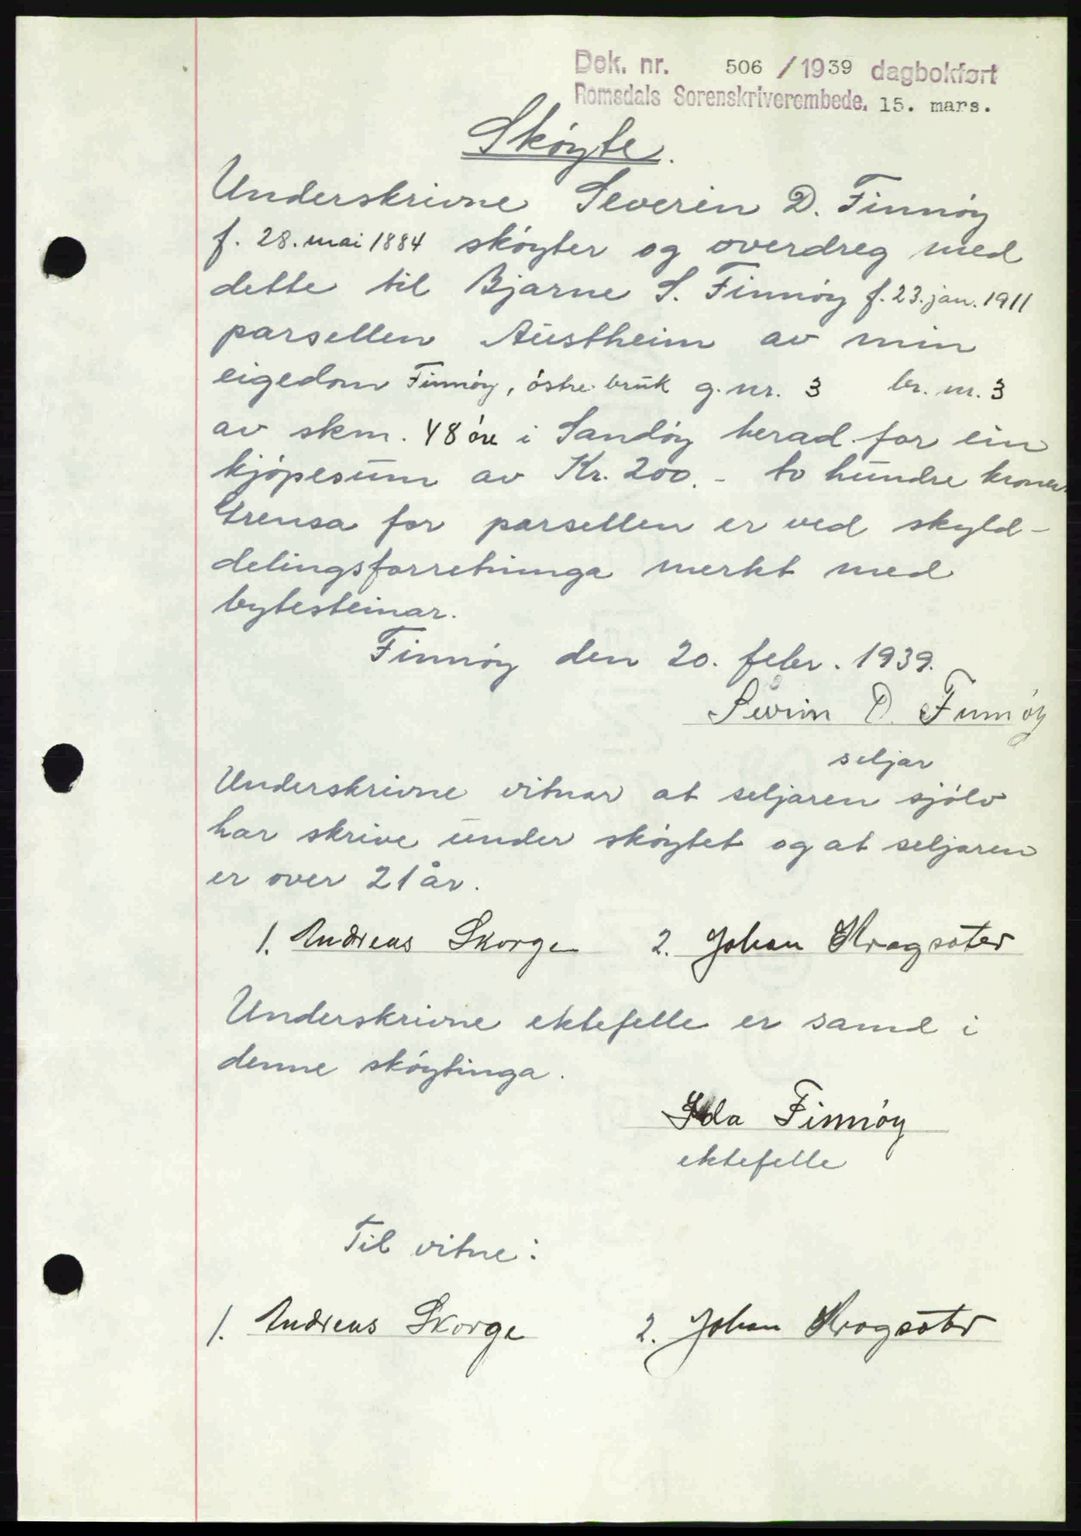 Dok. nr. 506 / 1939 dagbokført
Romsdals Sorenskriverembede. 15. mars.
Skøyte.
Underskrivne Severin D. Finnøy
f. 28. mai 1884 skøyter og overdreg med
dette til Bjarne S. Finnøy f. 23. jan. 1911
parsellen Austheim av min
eigedom Finnøy, østre bruk g. nr. 3 br. nr. 3
av skm. 48 øre i Sandøy herad for ein
kjøpesum av Kr. 200.- to hundre kroner
Grensa for parsellen er ved skyld-
delingsforretninga merkt med
bytesteinar.
Finnøy den 20. febr. 1939.
Sevrin D. Finnøy
seljar
Underskrivne vitnar at seljaren sjølv
har skrive under skøytet og at seljaren
er over 21 år.
1. Andreas Skorge 2. Johan Kragsæter
Underskrivne ektefelle er samd i
denne skøytinga.
Ida Finnøy
ektefelle
Til vitne:
1. Andreas Skorge 2. Johan Kragsæter